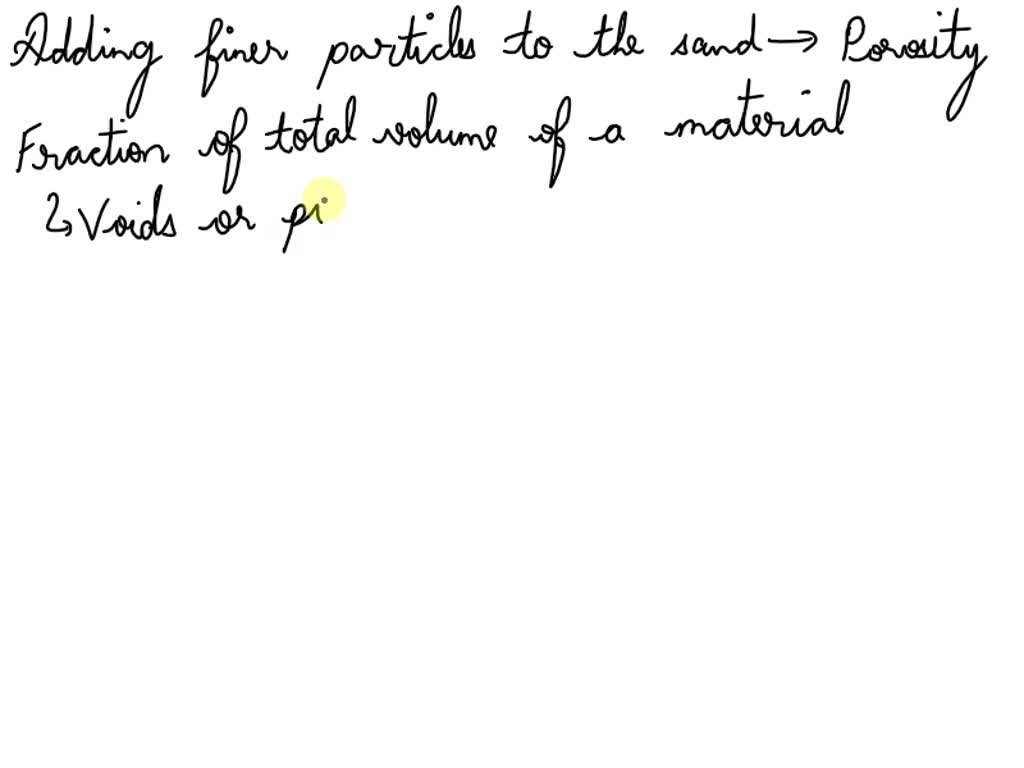 Adding finer particles to the sand → Porosity
Fraction of total volume of a material
↳ Voids or pi